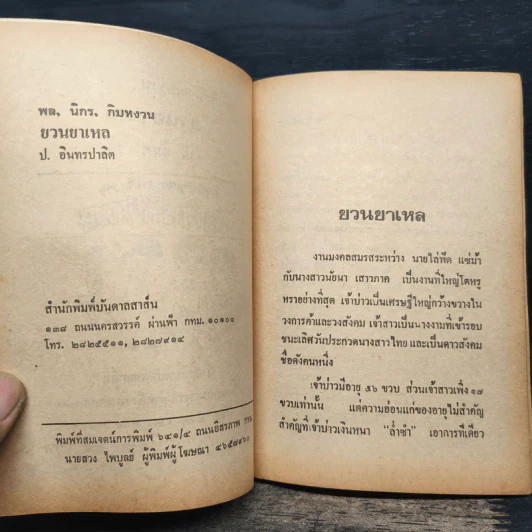 พล, นิกร, กิมหงวน
ยวนยาเหล
ป. อินทรปาลิต
สำนักพิมพ์บันดาลสาส์น
๑๓๘ ถนนนครสวรรค์ ผ่านฟ้า กทม. ๑๐๑๐๐
โทร. ๒๘๒๕๕๑๑, ๒๘๒๗๙๑๔
พิมพ์ที่สมเจตน์การพิมพ์ ๖๔๑/๔ ถนนอิสรภาพ
นายสวง ไพบูลย์ ผู้พิมพ์ผู้โฆษณา ๔๖๕๗๙๖๐
ยวนยาเหล
งานมงคลสมรสระหว่าง นายไล่ฑีด แซ่ม้า
กับนางสาวนัยนา เสาวภาค เป็นงานที่ใหญ่โตหรู
หราอย่างที่สุด เจ้าบ่าวเป็นเศรษฐีใหญ่กว้างขวางใน
วงการค้าและวงสังคม เจ้าสาวเป็นนางงามที่เข้ารอบ
ชนะเลิศวันประกวดนางสาวไทย และเป็นดาวสังคม
ชื่อดังคนหนึ่ง
เจ้าบ่าวมีอายุ ๕๖ ขวบ ส่วนเจ้าสาวเพิ่ง ๑๗
ขวบเท่านั้น แต่ความอ่อนแก่ของอายุไม่สำคัญ
สำคัญที่เจ้าบ่าวเงินหนา "ล่ำซำ" เอาการทีเดียว